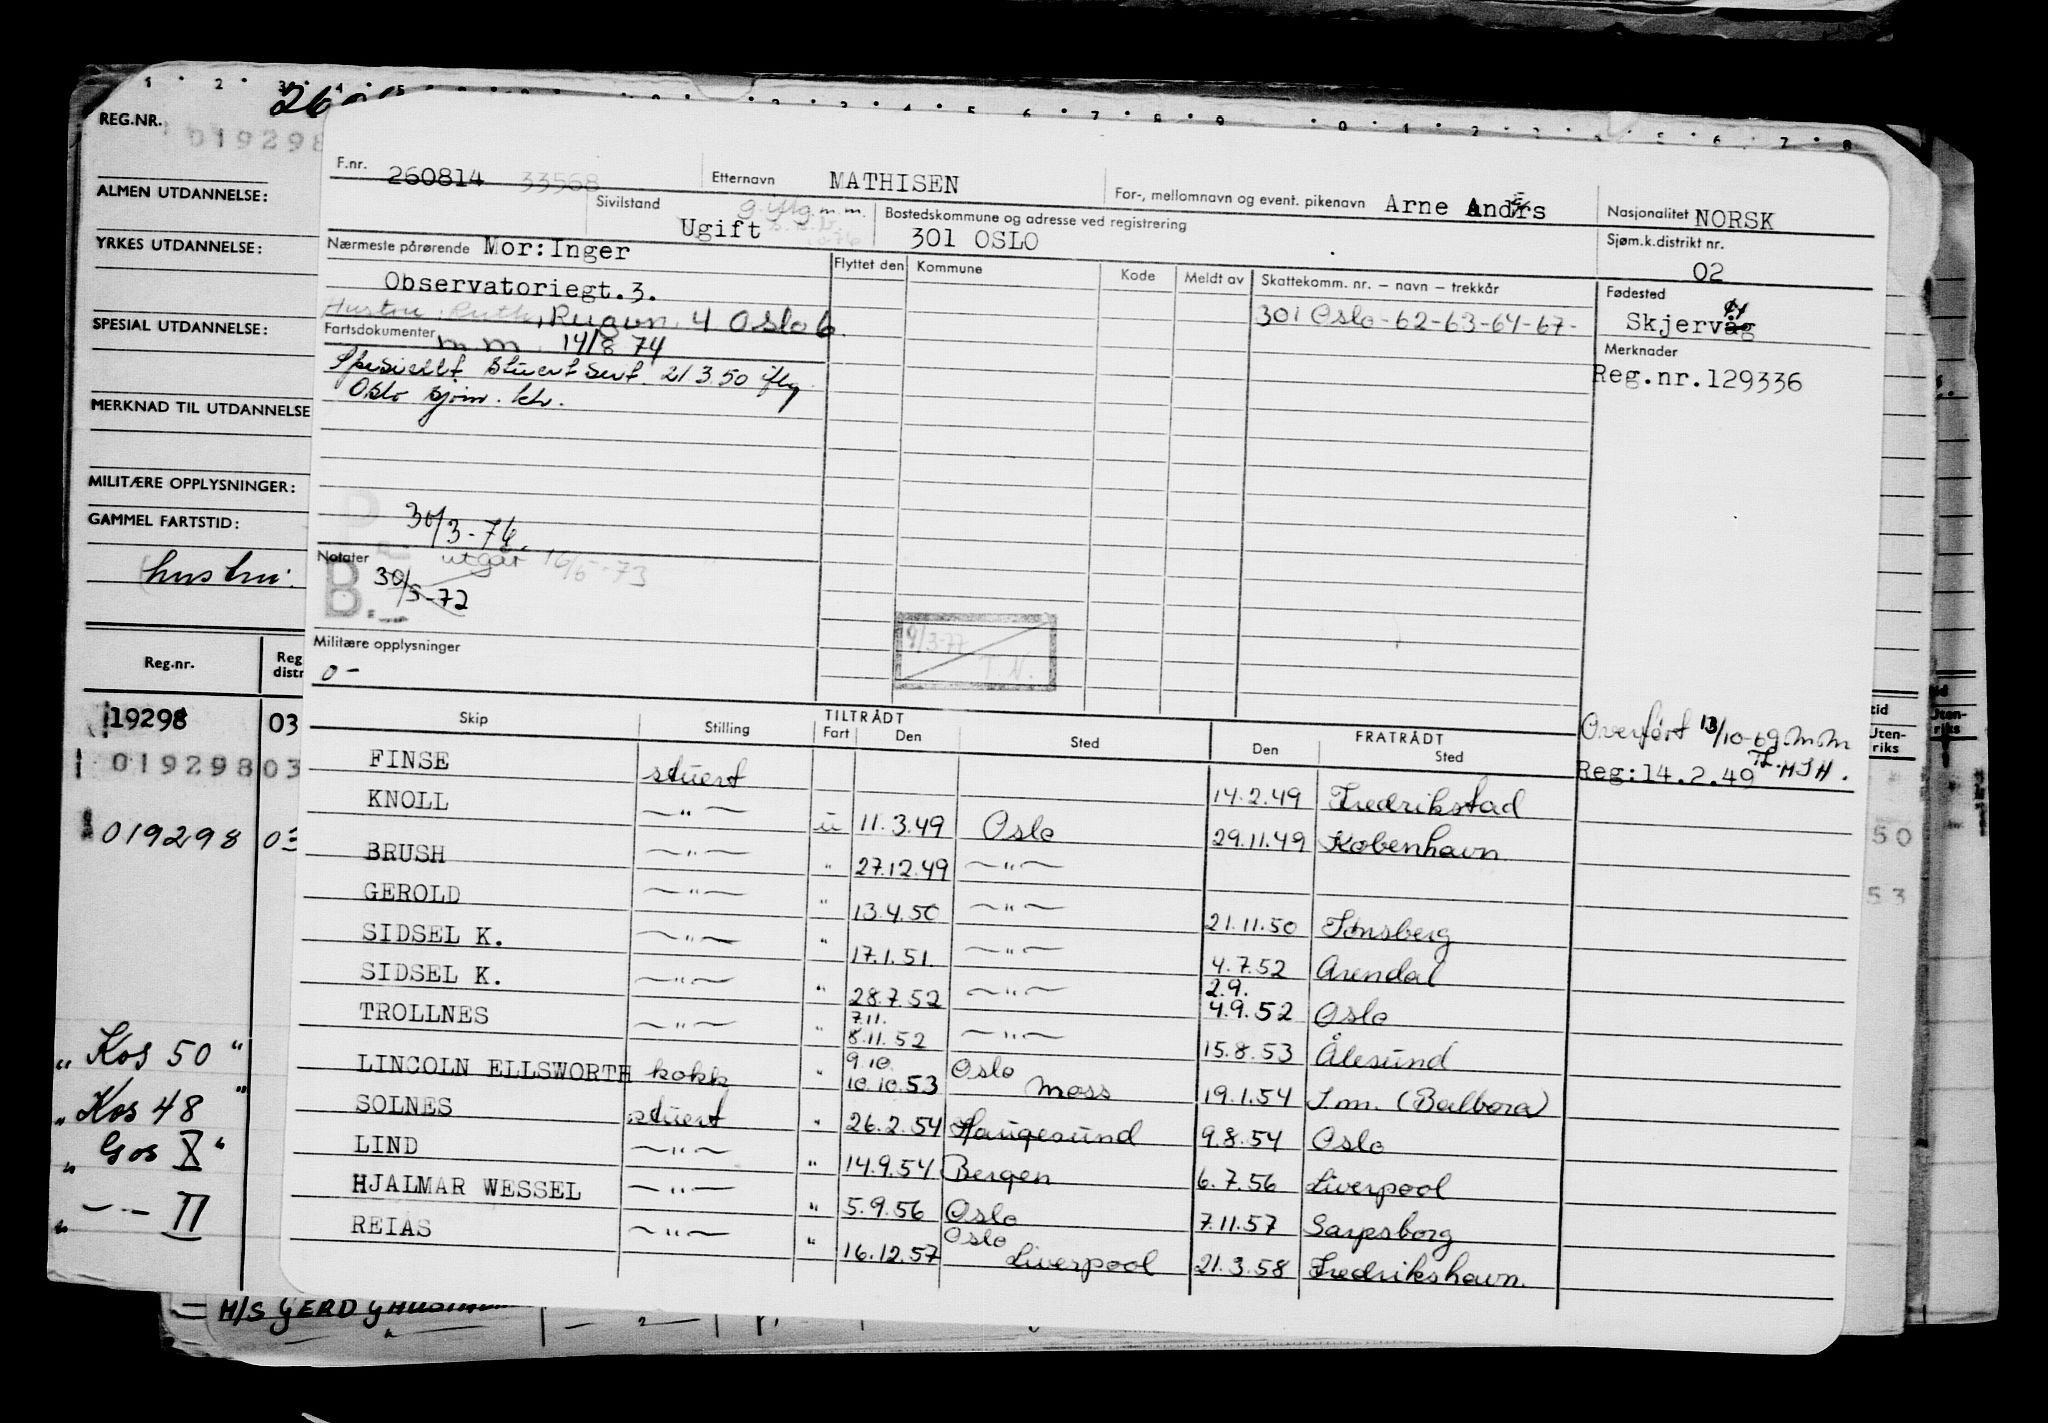 REG.NR.
019298
ALMEN UTDANNELSE:
YRKES UTDANNELSE:
SPESIAL UTDANNELSE:
MERKNAD TIL UTDANNELSE
MILITÆRE OPPLYSNINGER:
GAMMEL FARTSTID:
hustru.
Reg.nr. Reg distr
19298 03
019298 03
019298 03
„ Kos 50 "
„ Kos 48 "
„ Gos X "
„ —"— II
M/S GERD
F.nr. 260814 33568 Etternavn MATHISEN For-, mellomnavn og event. pikenavn Arne Andrs Nasjonalitet NORSK
Sivilstand Ugift g. iflg. m.m. Bostedskommune og adresse ved registrering 301 OSLO Sjøm.k.distrikt nr. 02
Nærmeste pårørende Mor:Inger Flyttet den Kommune Kode Meldt av Skattekomm. nr. – navn – trekkår Fødested
Observatoriegt.3. 301 Oslo -62-63-64-67- Skjervåg øy
Hustru Ruth, Rugvn. 4 Oslo 6 Merknader
Fartsdokumenter m.m. 14/8 74 Reg.nr.129336
Spesiellt Stuert Sert. 21.3.50 iflg
Oslo sjøm. ktr.
30/3-76.
Notater utgår 16/5-73
B. 30/5-72
9/3-77
T.N.
Militære opplysninger
0-
Overført 13/10-69 m.m
Reg:14.2.49
Skip Stilling TILTRÅDT Fart Den Sted FRATRÅDT Den Sted
FINSE stuert 14.2.49 Fredrikstad
KNOLL —"— u 11.3.49 Oslo 29.11.49 København
BRUSH —"— " 27.12.49 —"—
GEROLD —"— " 13.4.50 —"— 21.11.50 Tønsberg
SIDSEL K. —"— " 17.1.51 —"— 4.7.52 Arendal
SIDSEL K. —"— " 28.7.52 —"— 2.9. 4.9.52 Oslo
TROLLNES —"— " 7.11. 8.11.52 —"— 15.8.53 Ålesund
LINCOLN ELLSWORTH kokk " 9.10. 10.10.53 Oslo Moss 19.1.54 I.m. (Balboa)
SOLNES stuert " 26.2.54 Haugesund 9.8.54 Oslo
LIND —"— " 14.9.54 Bergen 6.7.56 Liverpool
HJALMAR WESSEL —"— " 5.9.56 Oslo 7.11.57 Sarpsborg
REIAS —"— " 16.12.57 Oslo Liverpool 21.3.58 Fredrikshavn
tid
Uten-
riks
50
53